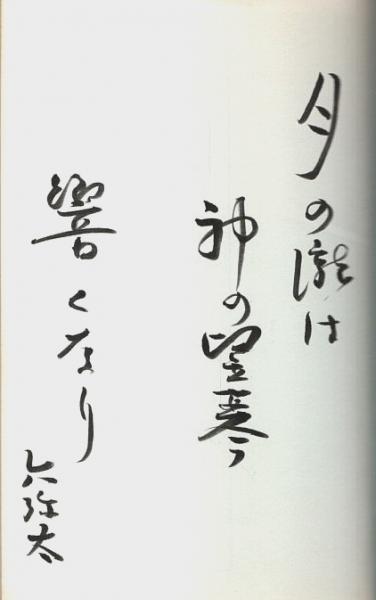 月の瀧は
神の竪琴
響くなり
六弥太